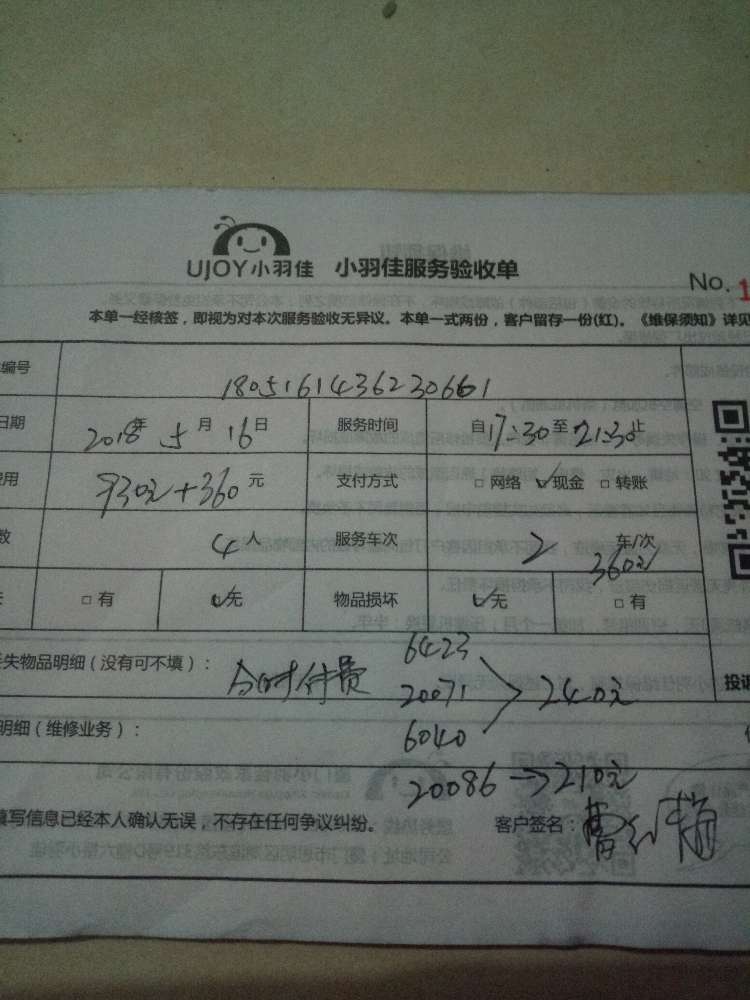 UJOY小羽佳 小羽佳服务验收单
No. 1
本单一经核签，即视为对本次服务验收无异议。本单一式两份，客户留存一份(红)。《维保须知》详见
编号 18051614362230661
日期 2018年 5月 16日 服务时间 自17:30至21:30止
费用 930元+360元 支付方式 □ 网络 ✓现金 □ 转账
数 4人 服务车次 2 车/次 360元
□ 有 ✓无 物品损坏 ✓无 □ 有
失物品明细（没有可不填）： 付费 6423
20071 240元
明细（维修业务）： 6040
20086 → 210元
填写信息已经本人确认无误，不存在任何争议纠纷。 客户签名：
投诉